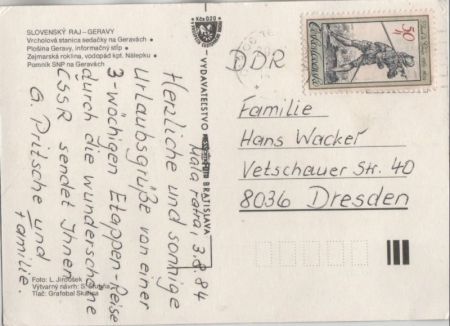 SLOVENSKÝ RAJ – GERAVY
Vrcholová stanica sedačky na Geravách •
Plošina Geravy, informačný stĺp •
Zejmarská roklina, vodopád kpt. Nálepku •
Pomník SNP na Geravách
Kčs 0,20
VYDAVATEĽSTVO BRATISLAVA
3.8.84
Herzliche und sonnige
Urlaubsgrüße von einer
3-wöchigen Etappen-Reise
durch die wunderschöne
ČSSR sendet Ihnen
G. Pritsche und
Familie.
Foto: L. Jiroušek
Výtvarný návrh: S.
Tlač: Grafobal Skalica
50
Československo
DDR
Familie
Hans Wacker
Vetschauer Str. 40
8036 Dresden